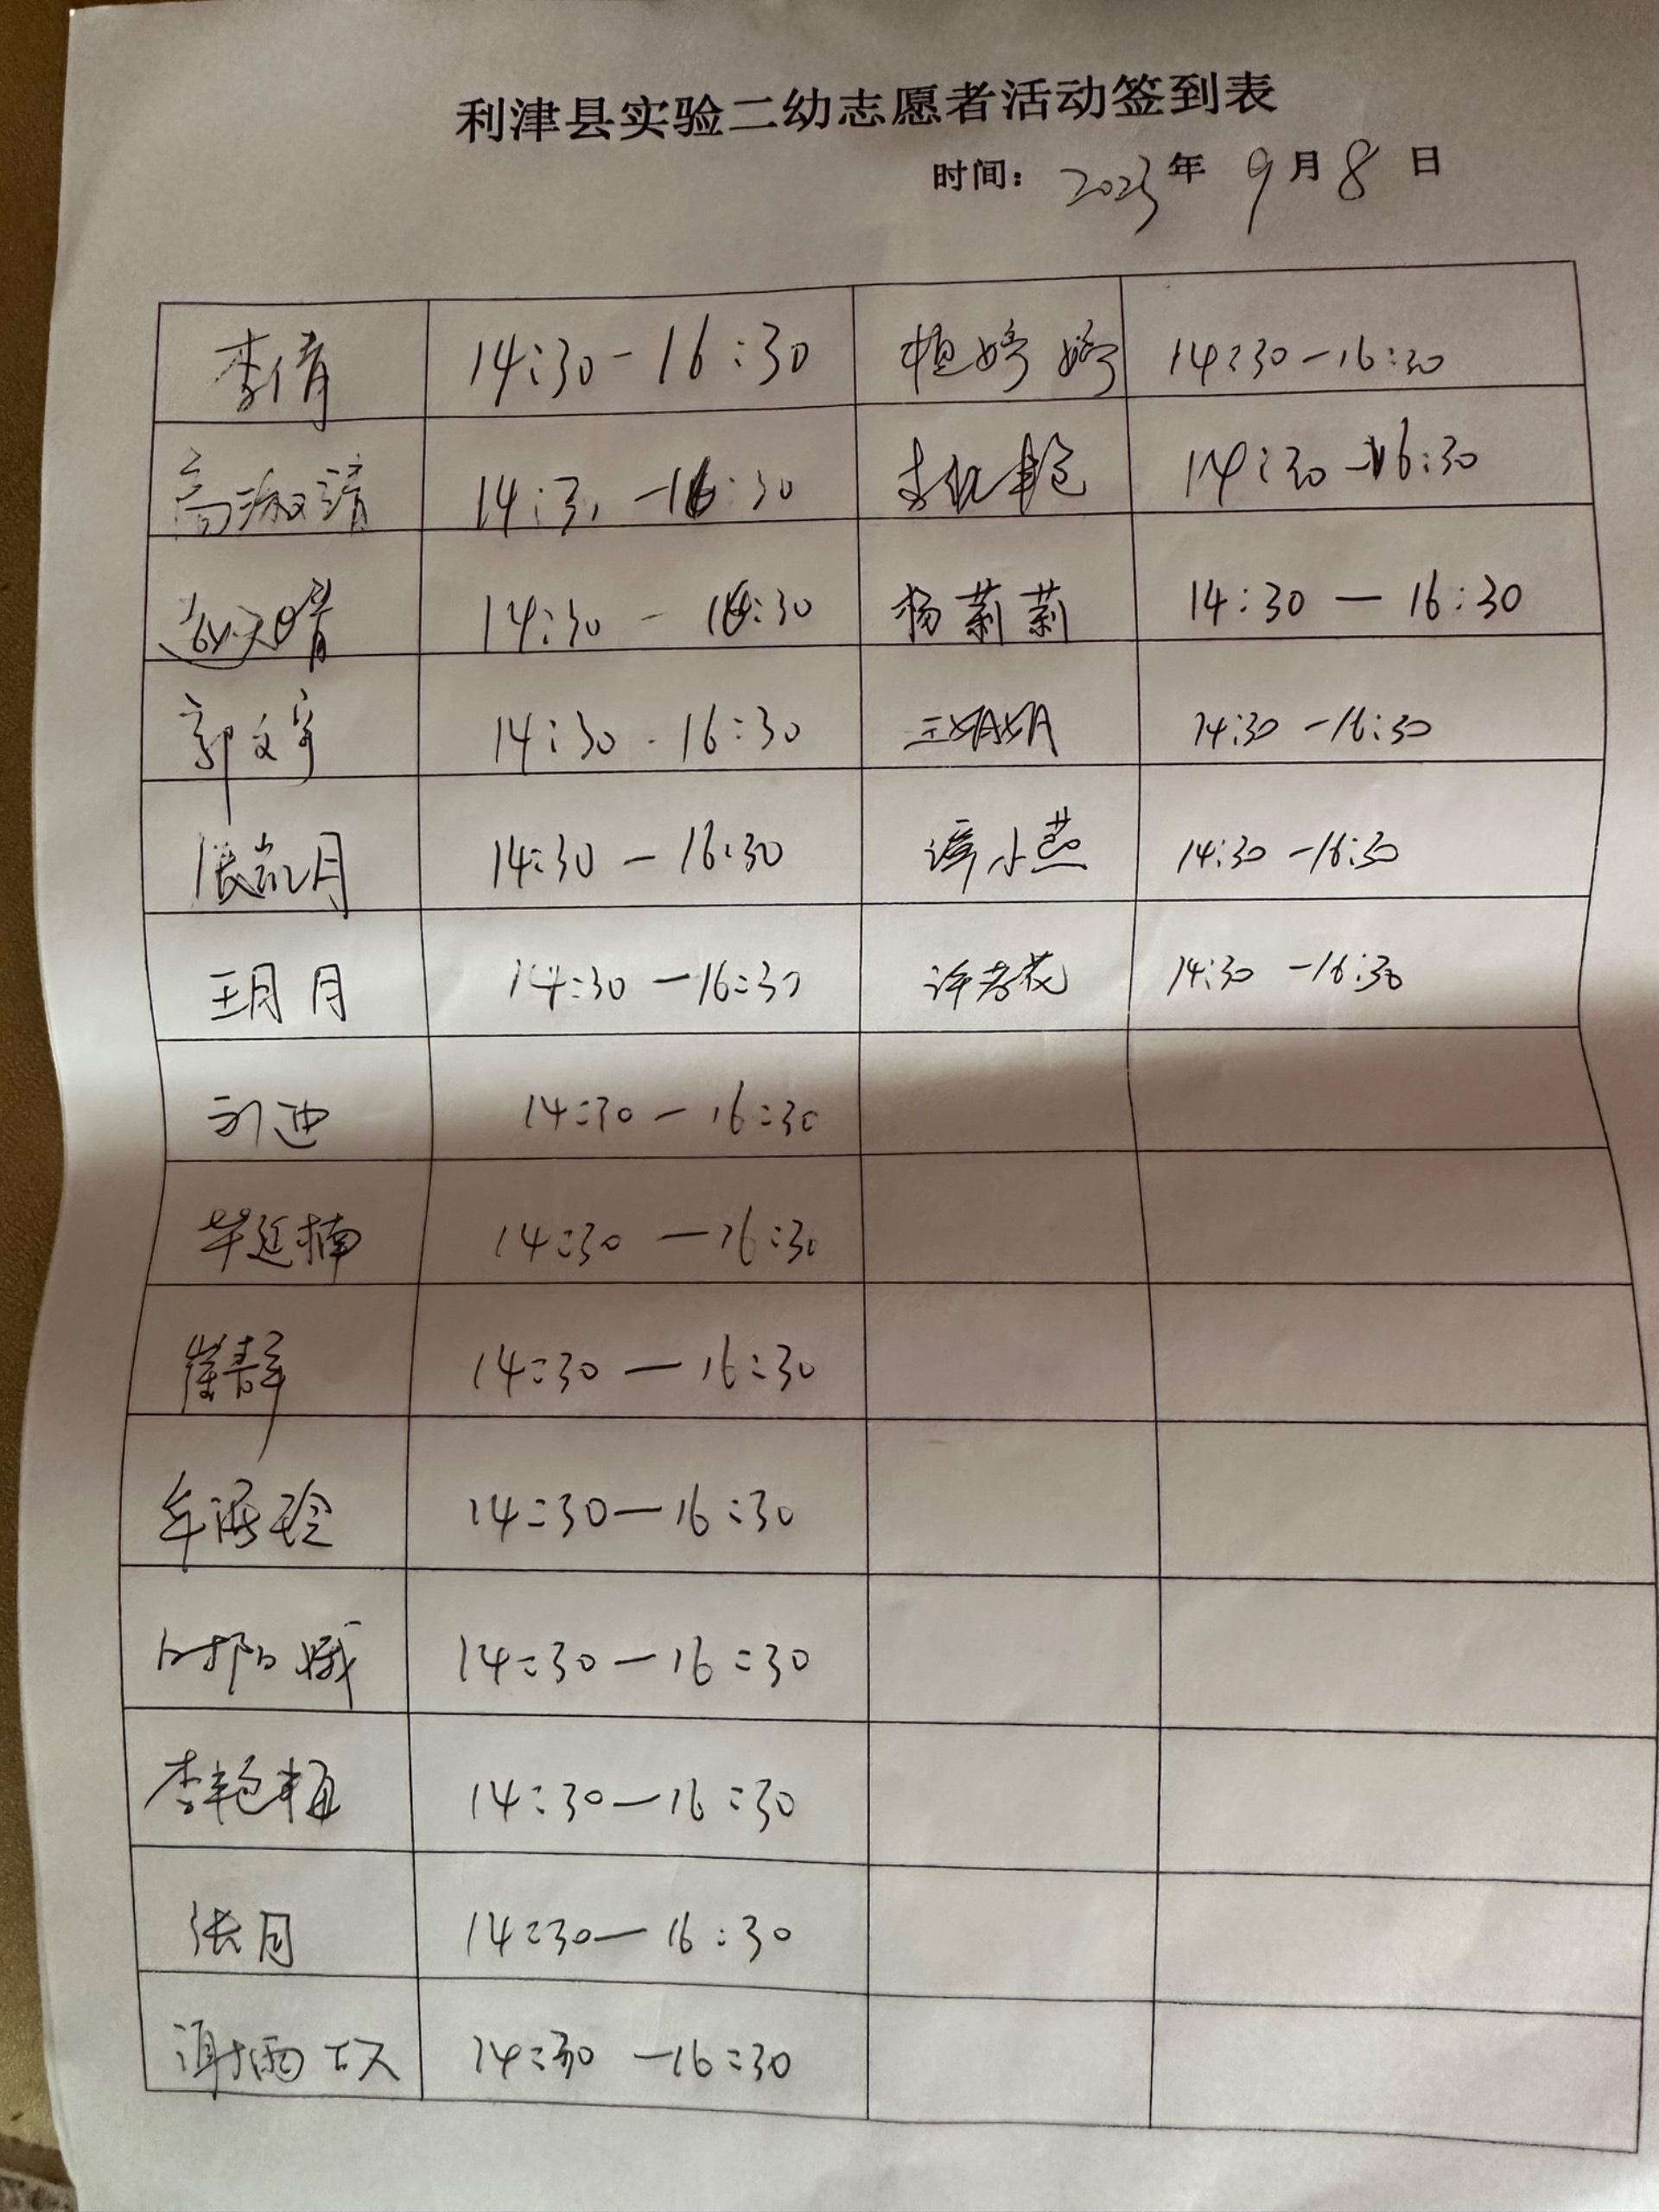 利津县实验二幼志愿者活动签到表
时间：2023年 9月8 日
李倩 14:30-16:30 植婷婷 14:30-16:30
高淑靖 14:30-16:30 14:30-16:30
赵天晴 14:30-16:30 杨莉莉 14:30-16:30
郭文宇 14:30-16:30 14:30-16:30
张凯月 14:30-16:30 谭小燕 14:30-16:30
王月月 14:30-16:30 许孝花 14:30-16:30
刘迪 14:30-16:30
毕延楠 14:30-16:30
崔静 14:30-16:30
牟海玲 14:30-16:30
时阳娥 14:30-16:30
李艳梅 14:30-16:30
张月 14:30-16:30
谢雨 14:30-16:30